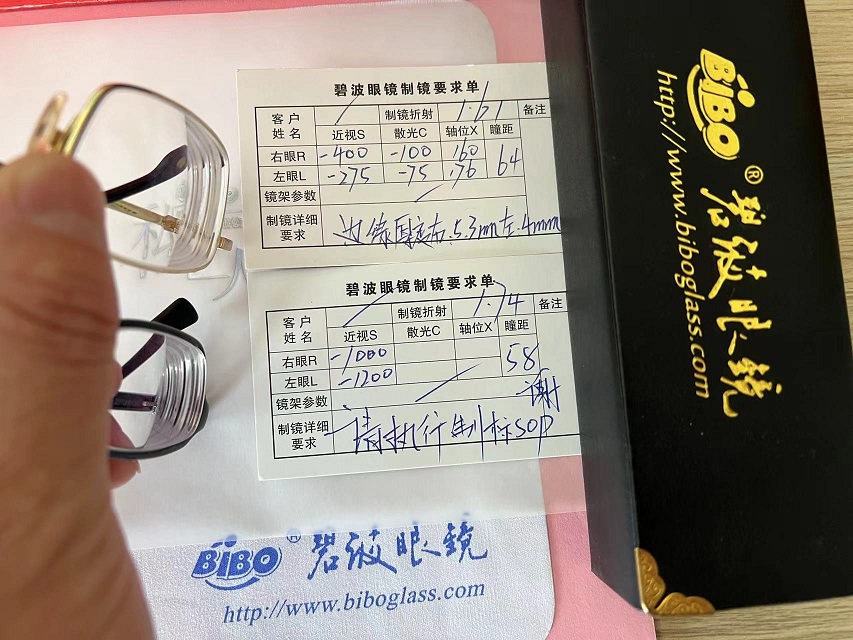 碧波眼镜制镜要求单
客户姓名 制镜折射 1.61 备注
近视S 散光C 轴位X 瞳距
右眼R -400 -100 160 64
左眼L -275 -75 .76
镜架参数
制镜详细要求 右.5.3mm左.4mm
碧波眼镜制镜要求单
客户姓名 制镜折射 1.74 备注
近视S 散光C 轴位X 瞳距
右眼R -1000 58
左眼L -1200
镜架参数 谢
制镜详细要求 请执行制标SOP
BiBO® 碧波眼镜
http://www.biboglass.com
BiBO® 碧波眼镜
http://www.biboglass.com